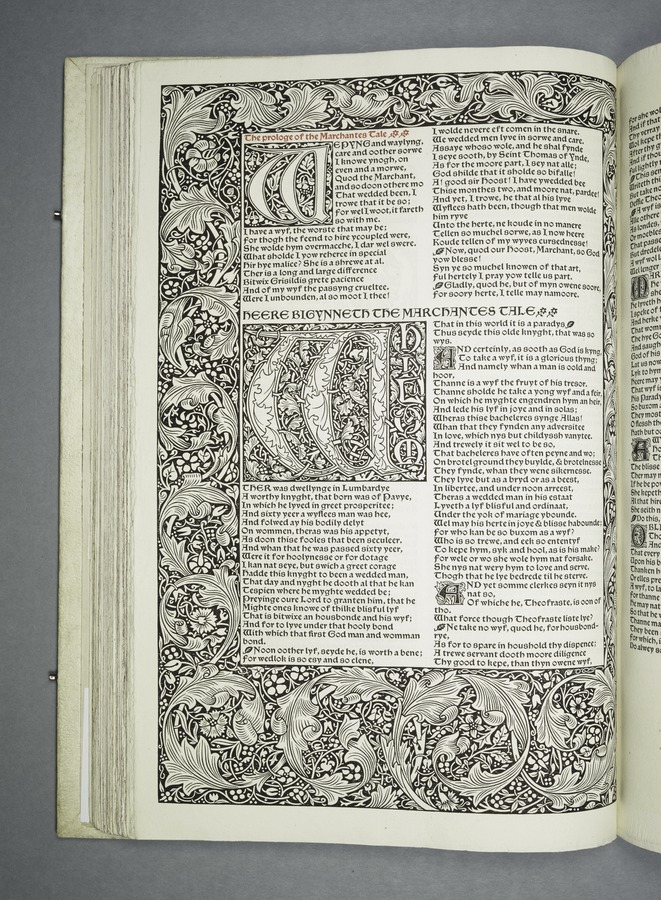 The prologe of the Marchantes Tale
WEPYNG and waylyng,
care and oother sorwe
I knowe ynogh, on
even and a morwe,
Quod the Marchant,
and so doon othere mo
That wedded been, I
trowe that it be so;
For wel I woot, it fareth
so with me.
I have a wyf, the worste that may be;
For thogh the feend to hire ycoupled were,
She wolde hym overmacche, I dar wel swere.
What sholde I yow reherce in special
Hir hye malice? She is a shrewe at al.
Ther is a long and large difference
Bitwix Grisildis grete pacience
And of my wyf the passyng crueltee.
Were I unbounden, al so moot I thee!
I wolde nevere eft comen in the snare.
We wedded men lyve in sorwe and care.
Assaye whoso wole, and he shal fynde
I seye sooth, by Seint Thomas of Ynde,
As for the moore part, I sey nat alle;
God shilde that it sholde so bifalle!
A! good sir Hoost! I have ywedded bee
Thise monthes two, and moore nat, pardee!
And yet, I trowe, he that al his lyve
Wyflees hath been, though that men wolde
him ryve
Unto the herte, ne koude in no manere
Tellen so muchel sorwe, as I now heere
Koude tellen of my wyves cursednesse!
Now, quod our Hoost, Marchant, so God
yow blesse!
Syn ye so muchel knowen of that art,
Ful hertely I pray yow telle us part.
Gladly, quod he, but of myn owene soore,
For soory herte, I telle may namoore.
HEERE BIGYNNETH THE MARCHANTES TALE
WHILOM
THER was dwellynge in Lumbardye
A worthy knyght, that born was of Pavye,
In which he lyved in greet prosperitee;
And sixty yeer a wyflees man was hee,
And folwed ay his bodily delyt
On wommen, theras was his appetyt,
As doon thise fooles that been seculeer.
And whan that he was passed sixty yeer,
Were it for hoolynesse or for dotage
I kan nat seye, but swich a greet corage
Hadde this knyght to been a wedded man,
That day and nyght he dooth al that he kan
Tespien where he myghte wedded be;
Preyinge oure Lord to granten him, that he
Mighte ones knowe of thilke blisful lyf
That is bitwixe an housbonde and his wyf;
And for to lyve under that hooly bond
With which that first God man and womman
bond.
Noon oother lyf, seyde he, is worth a bene;
For wedlok is so esy and so clene,
That in this world it is a paradys
Thus seyde this olde knyght, that was so
wys.
AND certeinly, as sooth as God is kyng,
To take a wyf, it is a glorious thyng;
And namely whan a man is oold and
hoor,
Thanne is a wyf the fruyt of his tresor.
Thanne sholde he take a yong wyf and a feir,
On which he myghte engendren hym an heir,
And lede his lyf in joye and in solas;
Wheras thise bacheleres synge Allas!
Whan that they fynden any adversitee
In love, which nys but childyssh vanytee.
And trewely it sit wel to be so,
That bacheleres have often peyne and wo;
On brotel ground they buylde, & brotelnesse
They fynde, whan they wene sikernesse.
They lyve but as a bryd or as a beest,
In libertee, and under noon arreest.
Theras a wedded man in his estaat
Lyveth a lyf blisful and ordinaat,
Under the yok of mariage ybounde.
Wel may his herte in joye & blisse habounde;
For who kan be so buxom as a wyf?
Who is so trewe, and eek so ententyf
To kepe hym, syk and hool, as is his make?
For wele or wo she wole hym nat forsake.
She nys nat wery hym to love and serve,
Thogh that he lye bedrede til he sterve.
AND yet somme clerkes seyn it nys
nat so,
Of whiche he, Theofraste, is oon of
tho.
What force though Theofraste liste lye?
Ne take no wyf, quod he, for housbond-
rye,
As for to spare in houshold thy dispence;
A trewe servant dooth moore diligence
Thy good to kepe, than thyn owene wyf,